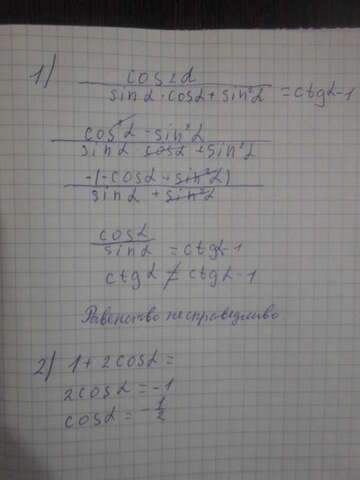 1) cos2α / sinα·cosα + sin²α = ctgα-1
cos²α - sin²α / sinα·cosα + sin²α
-(-cosα + sin²α) / sinα + sin²α
cosα / sinα = ctgα-1
ctgα ≠ ctgα-1
Равенство несправедливо.
2) 1 + 2cosα =
2cosα = -1
cosα = -1/2